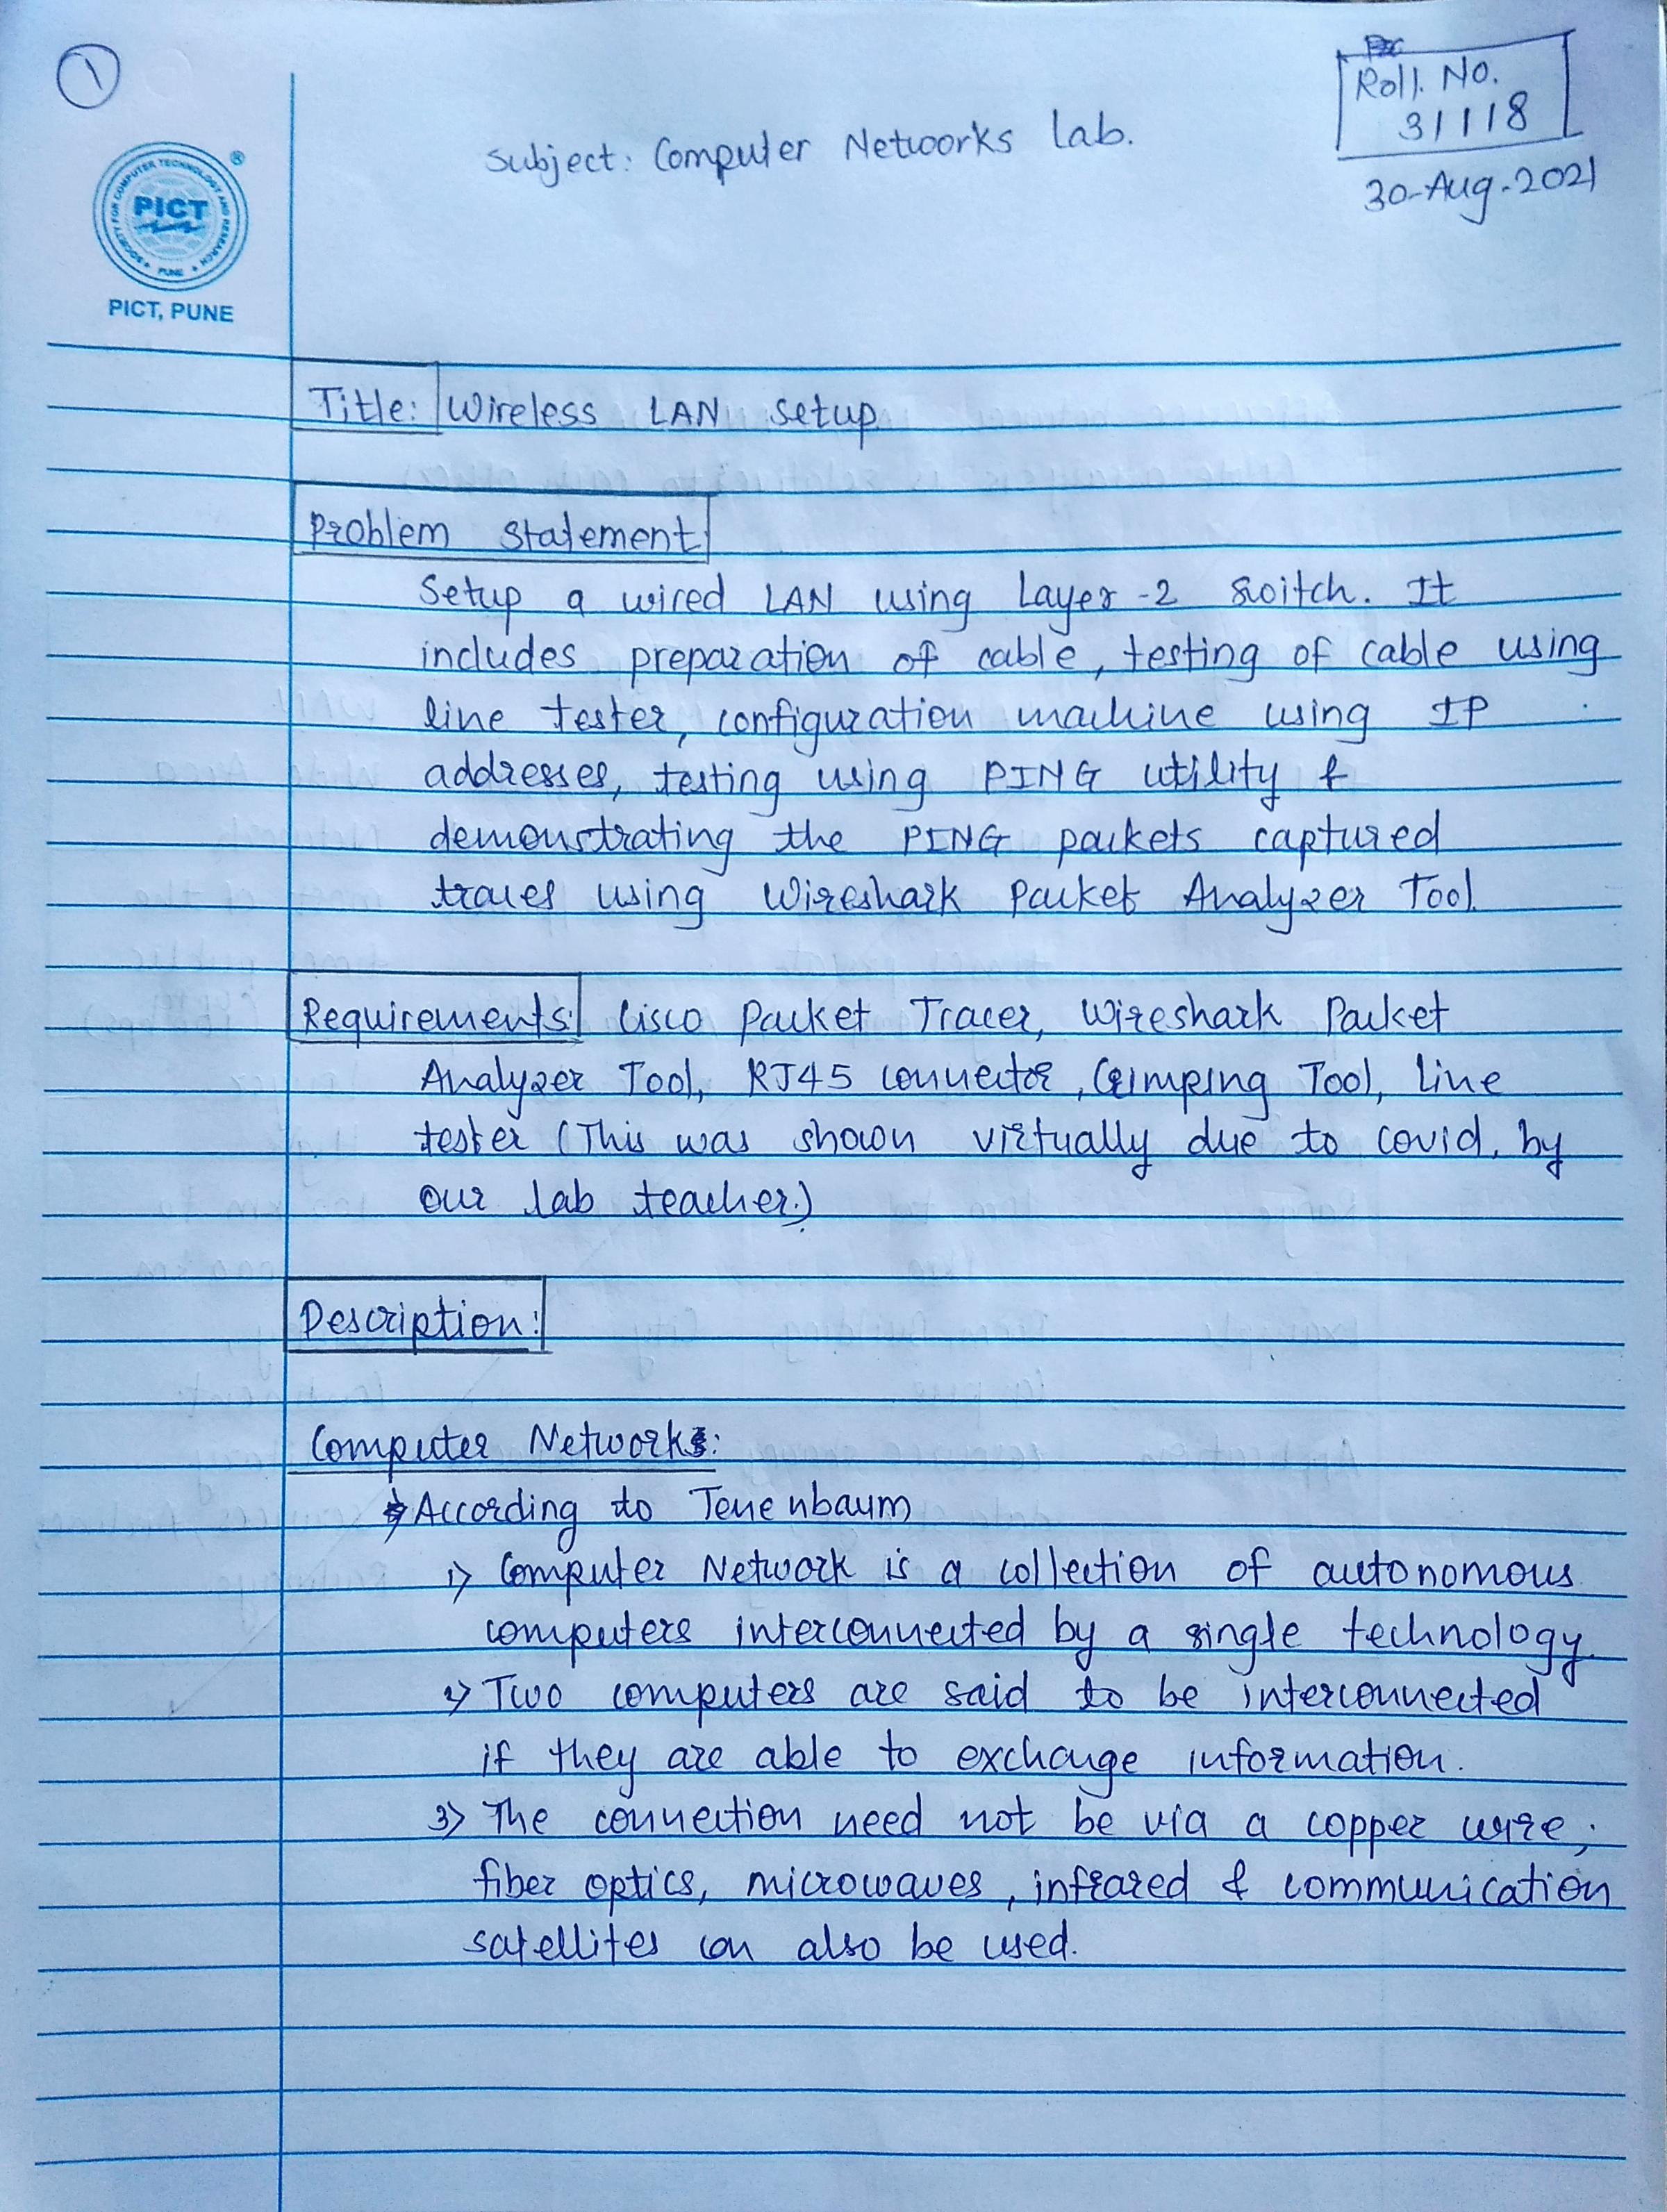 1
Roll. No.
31118
Subject: Computer Networks Lab.
30-Aug-2021
SOCIETY FOR COMPUTER TECHNOLOGY AND RESEARCH
PUNE
PICT
®
PICT, PUNE
Title: Wireless LAN setup
Problem Statement
Setup a wired LAN using Layer-2 switch. It
includes preparation of cable, testing of cable using
line tester, configuration machine using IP
addresses, testing using PING utility &
demonstrating the PING packets captured
traces using Wireshark Packet Analyzer Tool.
Requirements: Cisco Packet Tracer, Wireshark Packet
Analyzer Tool, RJ45 connector, Crimping Tool, Line
tester (This was shown virtually due to covid, by
our lab teacher.)
Description:
Computer Networks:
According to Tenenbaum
1> Computer Network is a collection of autonomous
computers interconnected by a single technology.
2> Two computers are said to be interconnected
if they are able to exchange information.
3> The connection need not be via a copper wire;
fiber optics, microwaves, infrared & communication
satellites can also be used.